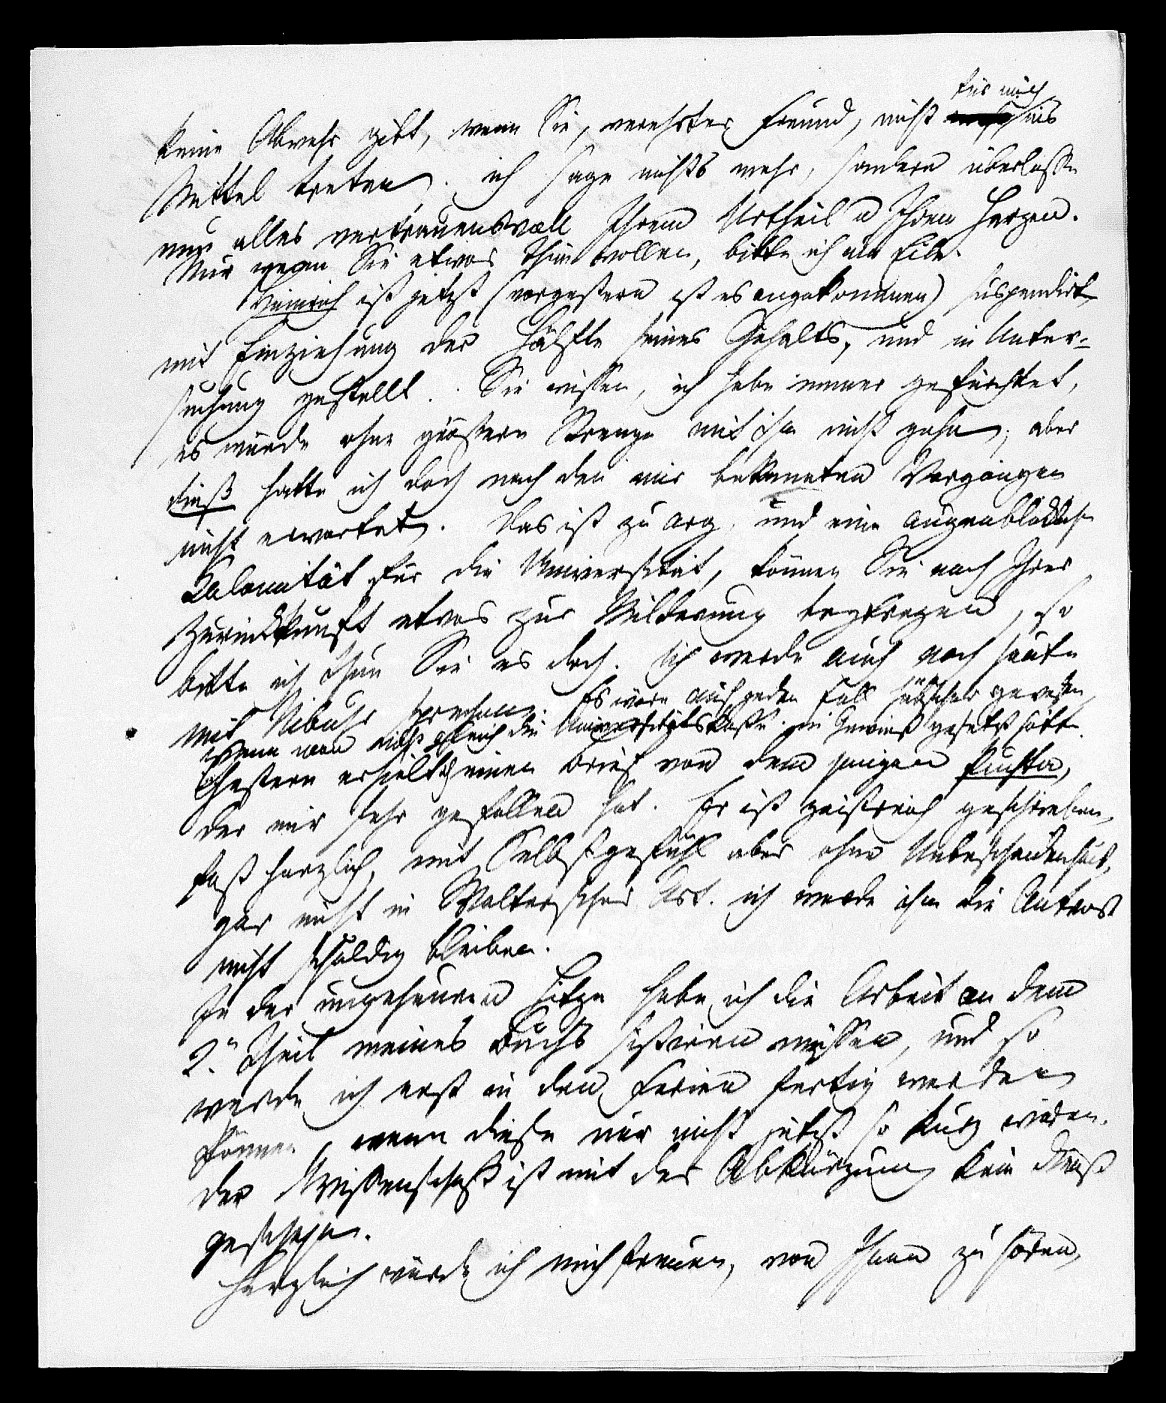 für mich
keine Abwehr gibt, wenn Sie, verehrter Freund, nicht ins
Mittel treten. ich sage nichts mehr, sondern überlasse
nun alles vertrauensvoll Ihrem Urtheil u Ihrem Herzen.
Nur wenn Sie etwas thun wollen, bitte ich um Eile.
Heinrich ist jetzt (vorgestern ist es angekommen) suspendirt
mit Einziehung der Hälfte seines Gehalts, und in Unter-
suchung gestellt. Sie wissen, ich habe immer gefürchtet,
es würde ohne größere Strenge mit ihm nicht gehn; aber
dieß hatte ich doch nach den mir bekannten Vorgängen
nicht erwartet. Das ist zu arg, und eine augenblickliche
Calamität für die Universität, können Sie nach Ihrer
Zurückkunft etwas zur Milderung beytragen, so
bitte ich thun Sie es doch. Ich werde auch noch heute
mit Niebuhr sprechen. Es wäre auf jeden Fall hübscher gewesen,
wenn man nicht gleich die Universitätskasse in Gewinst gesetzt hätte.
Gestern erhielt ich einen Brief von dem jungen Puchta,
der mir sehr gefallen hat. Er ist geistreich geschrieben,
fast herzlich, mit Selbstgefühl aber ohne Unbescheidenheit,
gar nicht in Walterscher Art. ich werde ihm die Antwort
nicht schuldig bleiben.
In der ungeheuren Hitze habe ich die Arbeit an dem
2.n Theil meines Buchs sistiren müssen, und so
werde ich erst in den Ferien fertig werden
können, wenn diese nur nicht jetzt so kurz wären.
Der Wissenschaft ist mit der Abkürzung kein Dienst
geschehen.
Herzlich würde ich mich freuen, von Ihnen zu hören,